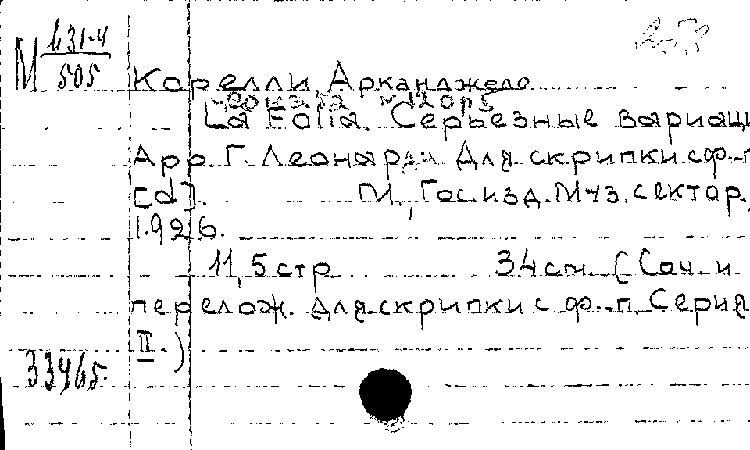 М 431-4
505
Корелли Арканджело
соната №12 ор5
La Folia. Серьезные вариац
Арр. Г. Леонарди Для скрипки с ф.-п
[d]. М., Гос.изд.Муз.сектор,
1926.
11,5 стр 34 см (Соч. и
перелож. для скрипки с ф.-п. Серия
II.)
33465.